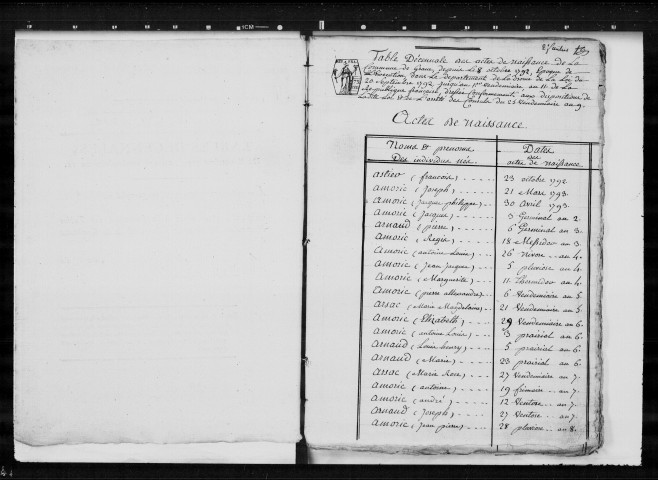 Table Décennale des actes de naissance de La
Commune de depuis le 8 octobre 1792, Epoque de
L'Exécution dans le departement de la Drome de La Loi du
20 Septembre 1792 jusqu'au 1er Vendemiaire an 11 de La
Republique française, dressée Conformement aux dispositions de
La dite Loi et de L'arrêté des Consuls du 25 Vendemiaire an 9.
Actes De Naissance.
Noms et prenoms
Des individus nés.
Dates
des
actes de naissance
astier (francois) 23 octobre 1792
amoric (Joseph) 21 Mars 1793
amoric (Jacque philippe) 30 Avril 1793
amoric (Jacque) 3 Germinal an 2.
arnaud (pierre) 6 Germinal an 3.
amoric (Regis) 18 Messidor an 3.
amoric (antoine Louis) 26 Nivose an 4.
amoric (Jean Jacques) 5 pluviose an 4.
amoric (Marguerite) 11 Thermidor an 4.
amoric (pierre allexandre) 6 Vendemiaire an 5.
arsac (Marie Magdelaine) 21 Vendemiaire an 5.
amoric (Elizabeth) 29 Vendemiaire an 6.
amoric (antoine Louis) 3 prairial an 6.
arnaud (Louis henry) 5 prairial an 6.
arnaud (Marie) 23 prairial an 6.
arsac (Marie Rose) 27 Vendemiaire an 7.
amoric (antoine) 19 frimaire an 7.
amoric (andré) 12 Ventose an 7.
arnaud (Joseph) 27 Ventose an 7.
amoric (Jean pierre) 28 pluviose an 8.